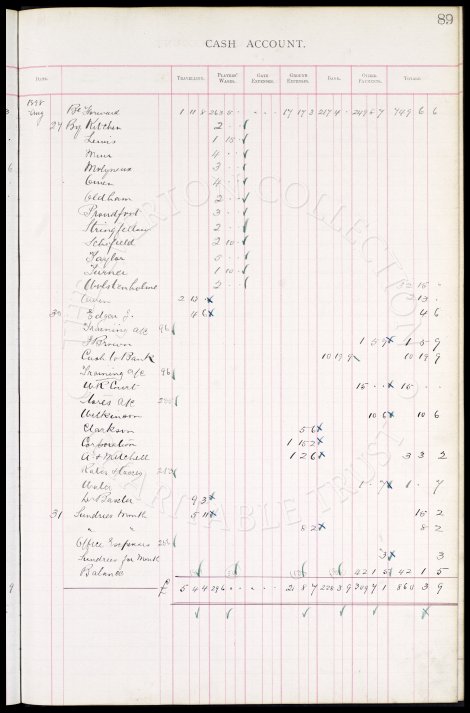 89
CASH ACCOUNT.
DATE. TRAVELLING. PLAYERS' WAGES. GATE EXPENSES. GROUND EXPENSES. BANK. OTHER PAYMENTS. TOTALS.
1898
Aug Bt Forward 1 11 8 263 15 - - - - 17 17 3 217 4 - 249 8 7 749 6 6
27 By Kitchen 2 - -
Lewis 1 15 -
Muir 4 - -
Molyneux 3 - -
Owen 4 - -
Oldham 2 - -
Proudfoot 3 - -
Stringfellow 2 - -
Schofield 2 10 -
Taylor 5 - -
Turner 1 10 -
Wolstenholme 2 - - 32 15 -
2 13 - 2 13 -
30 Edgar J. 4 6 4 6
Training a/c 96
J Brown 1 5 9 1 5 9
Cash to Bank 10 19 9 10 19 9
Training a/c 96
W R Court 15 - - 15 - -
Stores a/c
Wilkinson 10 6 10 6
Clarkson 5 6
Corporation 1 15 2
A & Mitchell 1 2 6 3 3 2
Rates & Taxes 253
Water 1 - 7 1 - 7
9 3
31 Sundries Month 5 11 15 2
" " 8 2 8 2
Office Expenses
Sundries for Month 3 3
Balance 42 1 5 42 1 5
£ 5 4 4 296 - - - - - 21 8 7 228 3 9 309 7 1 860 3 9
THE EVERTON COLLECTION
CHARITABLE TRUST